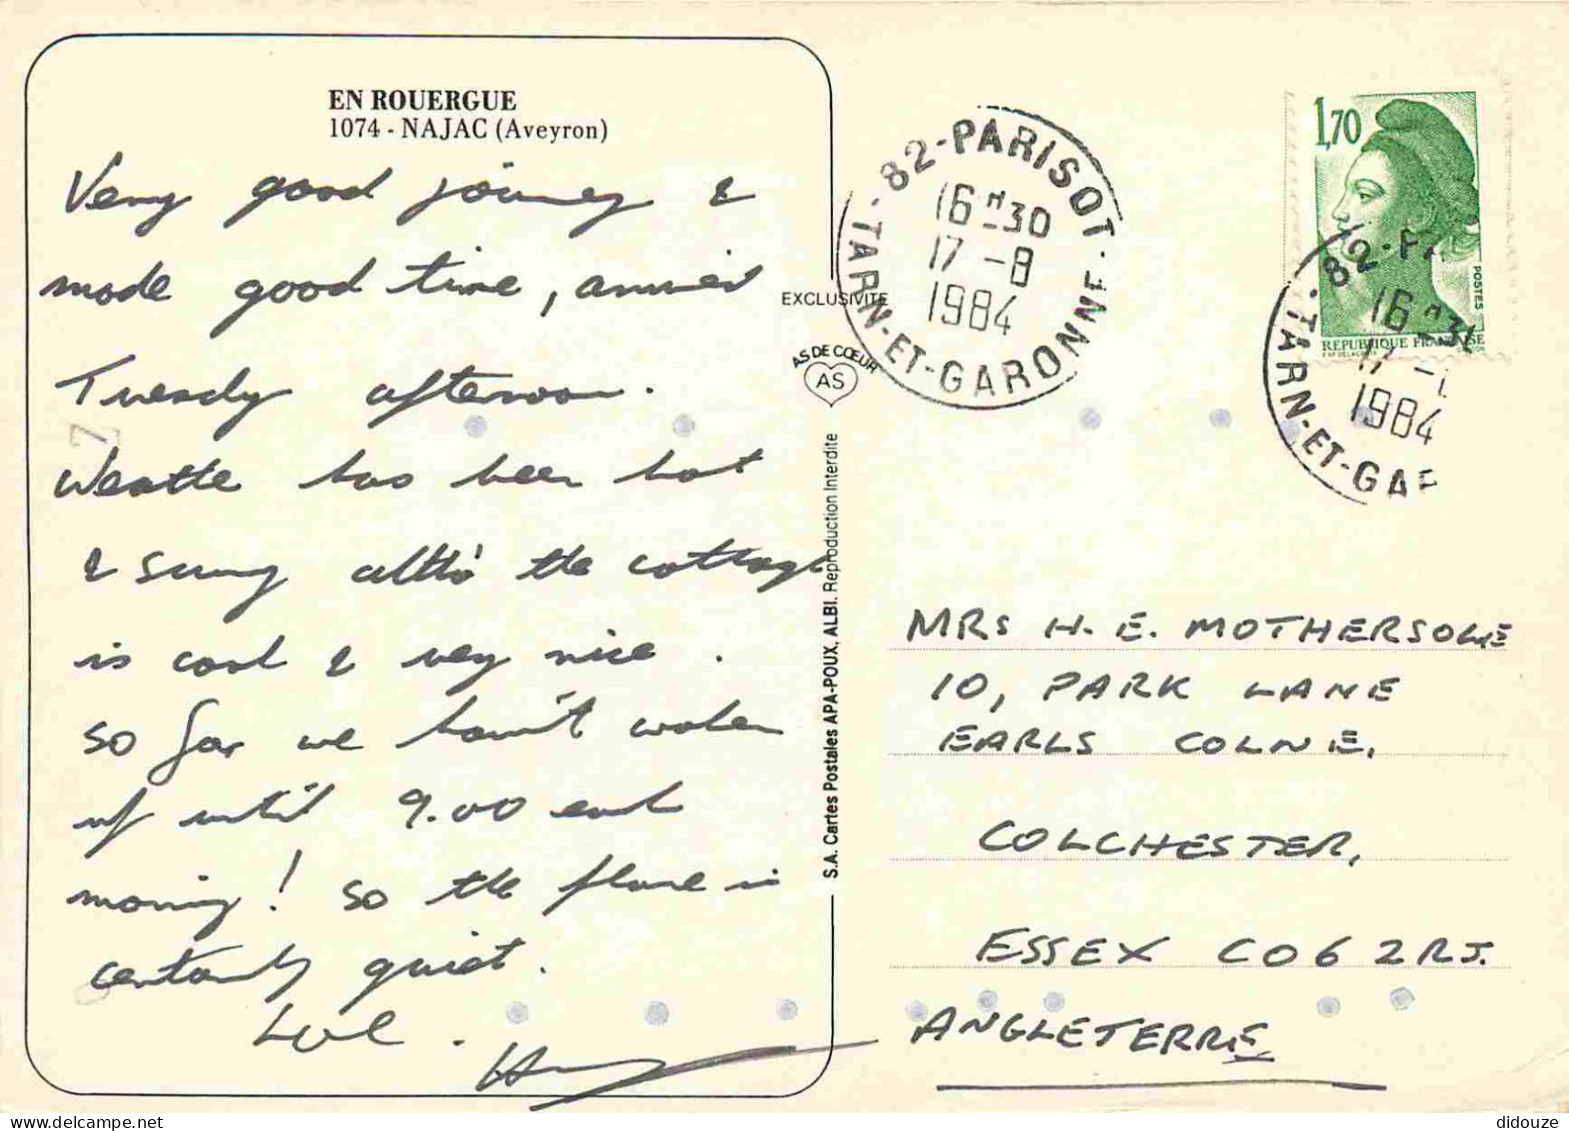 EN ROUERGUE
1074 - NAJAC (Aveyron)
Very good journey &
made good time, arrived
Tuesday afternoon.
Weather has been hot
& sunny altho' the cottage
is cool & very nice.
So far we haven't woken
up until 9.00 each
morning! So the place is
certainly quiet.
Love.
EXCLUSIVITE
AS DE CŒUR
AS
S.A. Cartes Postales APA-POUX, ALBI. Reproduction Interdite
82-PARISOT
16H30
17-8
1984
TARN-ET-GARONNE
1,70
POSTES
REPUBLIQUE FRANÇAISE
82-PA
16H3
17-
1984
TARN-ET-GAR
MRS H.E. MOTHERSOLE
10, PARK LANE
EARLS COLNE,
COLCHESTER,
ESSEX CO6 2RJ.
ANGLETERRE
didouze